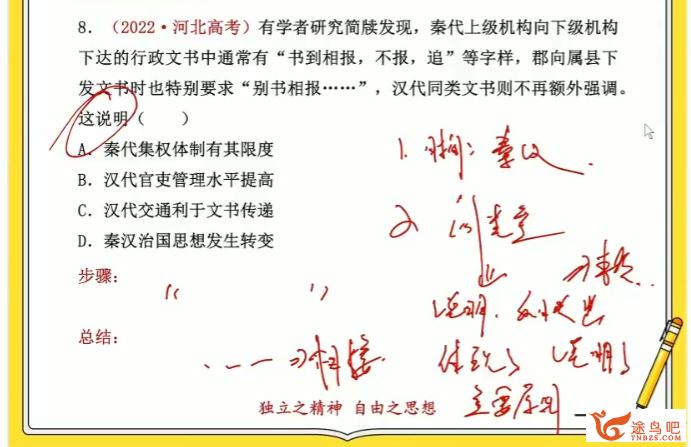 8. （2022·河北高考）有学者研究简牍发现，秦代上级机构向下级机构
下达的行政文书中通常有“书到相报，不报，追”等字样，郡向属县下
发文书时也特别要求“别书相报……”，汉代同类文书则不再额外强调。
这说明（　　）
A. 秦代集权体制有其限度
B. 汉代官吏管理水平提高
C. 汉代交通利于文书传递
D. 秦汉治国思想发生转变
1. 时间：秦汉
2.
步骤：
“ ”
说明
总结：
说明了
独立之精神 自由之思想
途鸟吧
TNBZS.COM